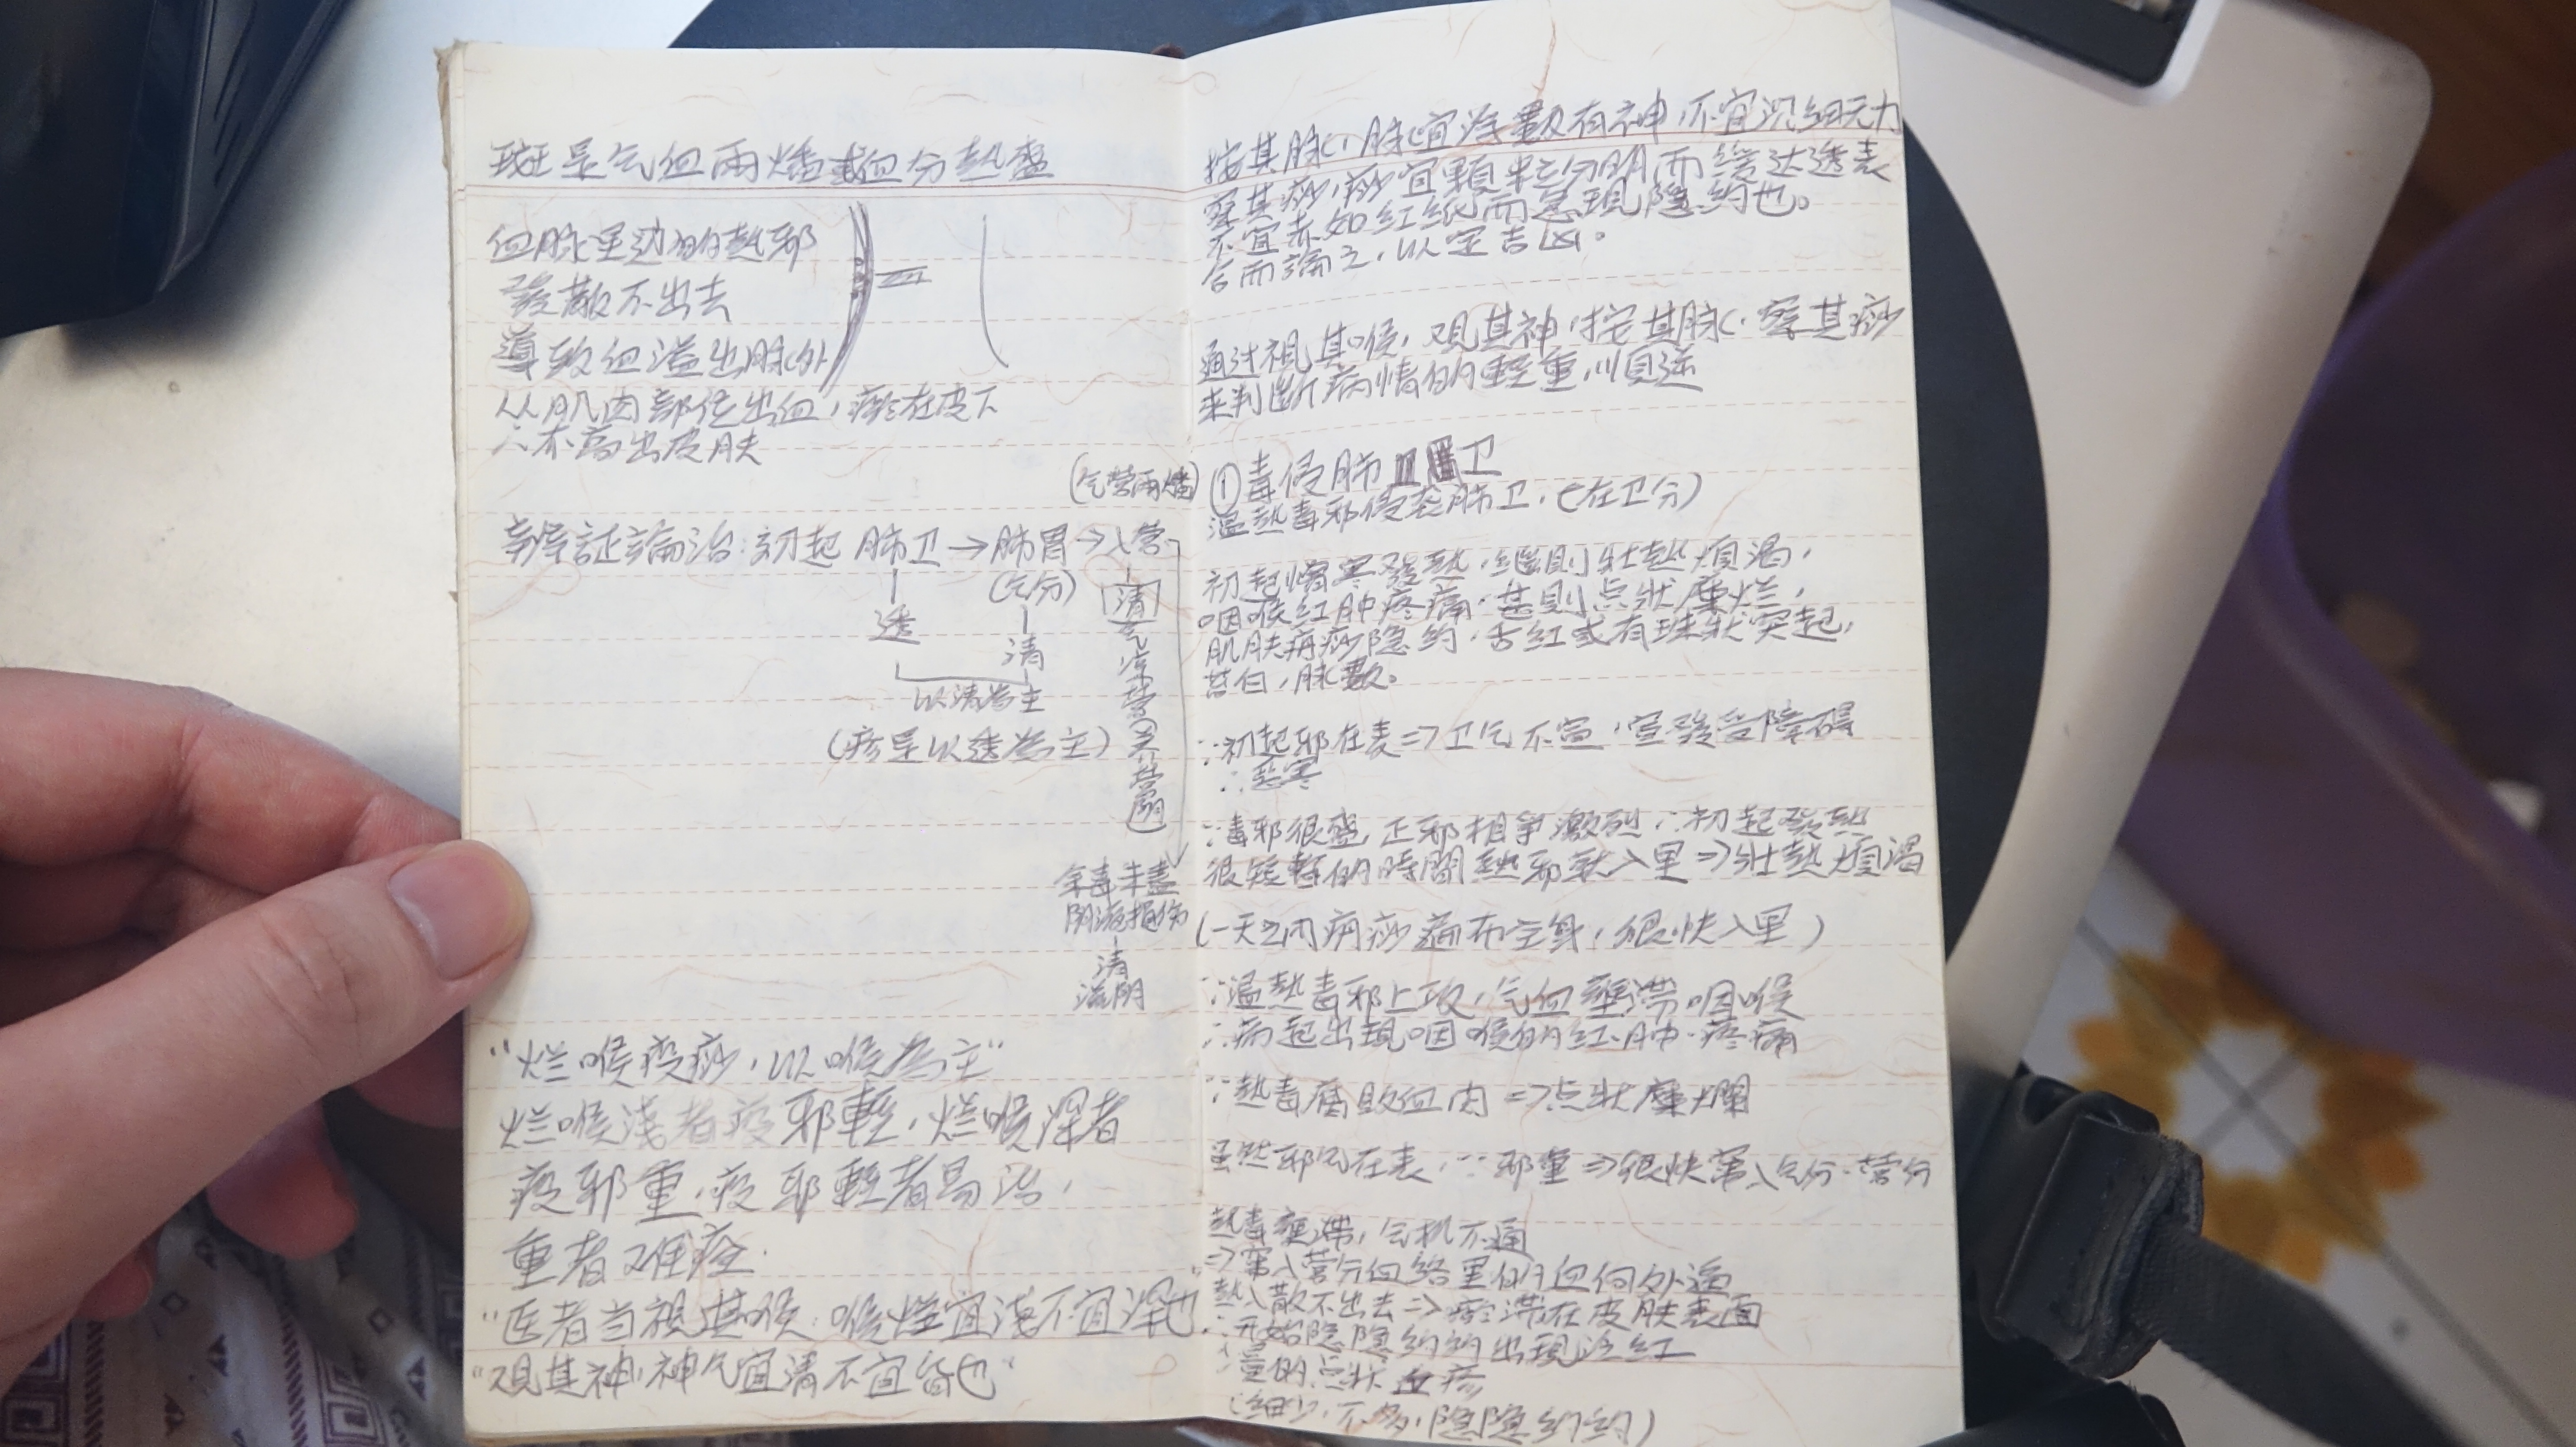 斑是气血兩燔或血分熱盛
血脉里边的熱邪
發散不出去
導致血溢出脉外
从肌肉部位出血，瘀在皮下
∴不高出皮肤
(气营兩燔)
辛辛証論治：初起 肺卫→肺胃→入营
(气分)
透
清
以清為主
(疹是以透為主)
清气凉营(養营陰)
余毒未盡
阴液損伤
清
滋阴
"烂喉疫痧，以喉為主"
烂喉浅者疫邪輕，烂喉深者
疫邪重，疫邪輕者易治，
重者难痊.
"医者当視其喉：喉烂宜浅不宜深也"
"观其神，神气宜清不宜昏也"
按其脉，脉宜浮數有神，不宜沉細无力
察其痧，痧宜顆粒分明而缓达透表
不宜赤如红纸而急現隐约也。
合而論之，以定吉凶。
通过視其喉，观其神，按其脉，察其痧
来判断病情的輕重，順逆
①毒侵肺卫
温熱毒邪侵袭肺卫.(在卫分)
初起憎寒發熱，继則壮熱煩渴，
咽喉红肿疼痛，甚則点狀糜烂，
肌肤痧隐约，舌红或有珠狀突起，
苔白，脉數。
∵初起邪在表⇒卫气不宣，宣發受障碍
∴惡寒
∵毒邪很盛，正邪相爭激烈∴初起發熱
很短暫的時間熱邪就入里⇒壮熱煩渴
(一天之内痧遍布全身，很快入里)
∵温熱毒邪上攻，气血壅滞咽喉
∴病起出現咽喉的红、肿、疼痛
∵熱毒腐敗血肉⇒点狀糜爛
虽然邪气在表，∵邪重⇒很快窜入气分、营分
熱毒壅滞，气机不通
⇒窜入营分血络里的血向外溢
熱入散不出去⇒瘀滞在皮肤表面
∴开始隐隐约约出現泛红
∴量的点狀血疹
(細小，不多，隐隐约约)